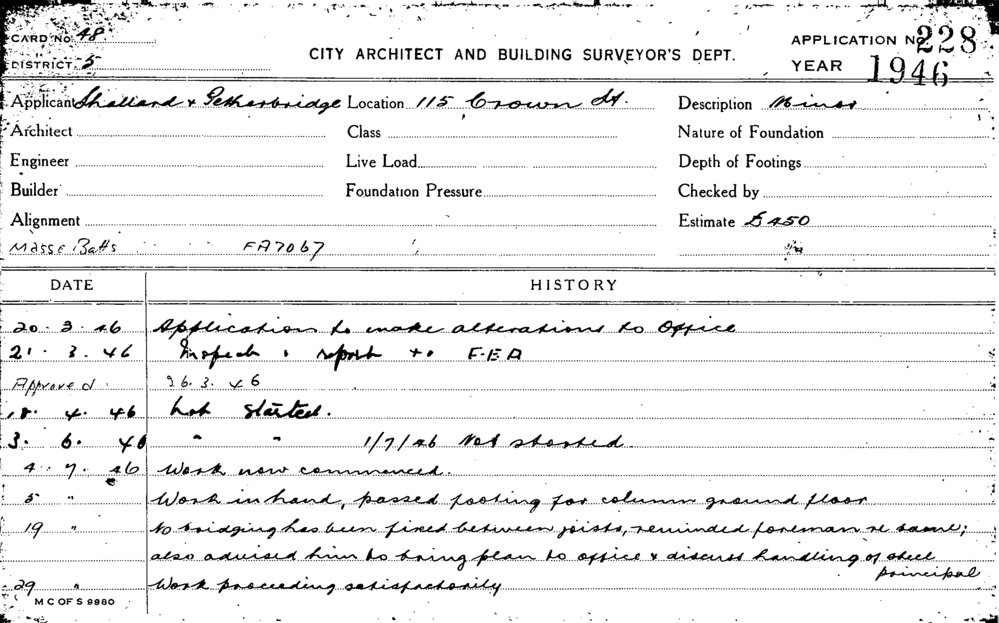 CARD No. 48
DISTRICT. 5
CITY ARCHITECT AND BUILDING SURVEYOR'S DEPT.
APPLICATION No 228
YEAR 1946
Applicant Shallard & Getharbridge Location 115 Crown St. Description Minor
Architect Class Nature of Foundation
Engineer Live Load Depth of Footings
Builder Foundation Pressure Checked by
Alignment Estimate £450
Masse Batts FA7067
DATE HISTORY
20. 3. 46 Application to make alterations to Office
21. 3. 46 Inspect & report to F.E.D
Approved. 26. 3. 46
18. 4. 46 Not started.
3. 6. 46 " " 1/7/46 Not started.
4. 7. 46 Work now commenced.
5 " Work in hand, passed footing for column ground floor
19 " No bridging has been fixed between joists, reminded foreman re same;
also advised him to bring plan to office & discuss handling of steel
principal
29 " Work proceeding satisfactorily
M C OF S 9980